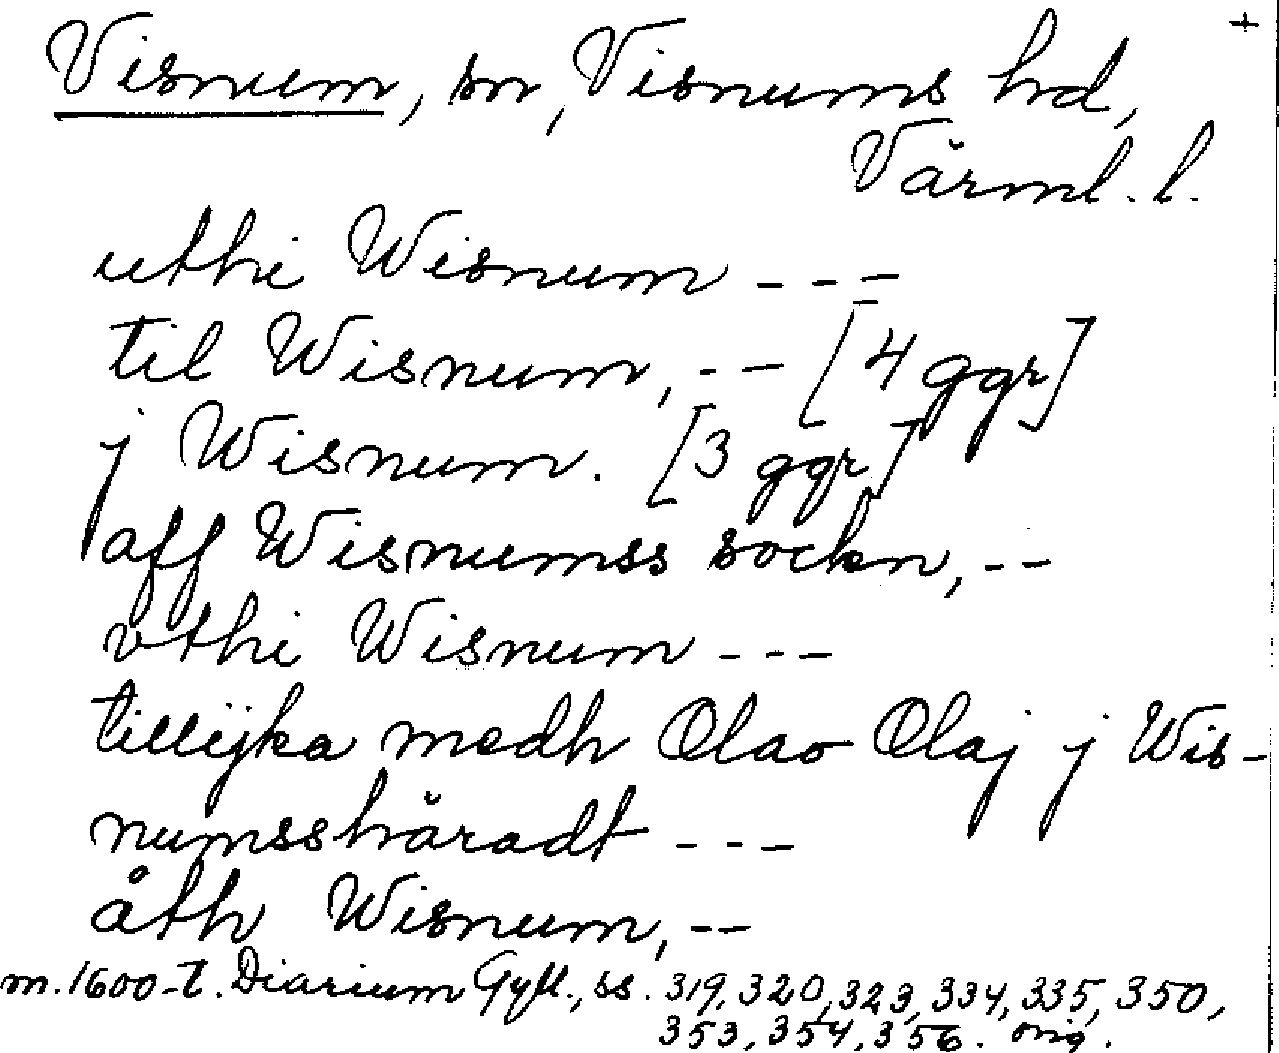 +
Visnum, sn, Visnums hd,
Värml. l.
uthi Wisnum - - -
til Wisnum, - - [4 ggr]
j Wisnum. [3 ggr]
aff Wisnumss sockn, - -
vthi Wisnum - - -
tillijka medh Olao Olaj j Wis-
numsshäradt - - -
åth Wisnum, - -
m. 1600-t. Diarium Gyll., ss. 319, 320, 323, 334, 335, 350,
353, 354, 356. orig.